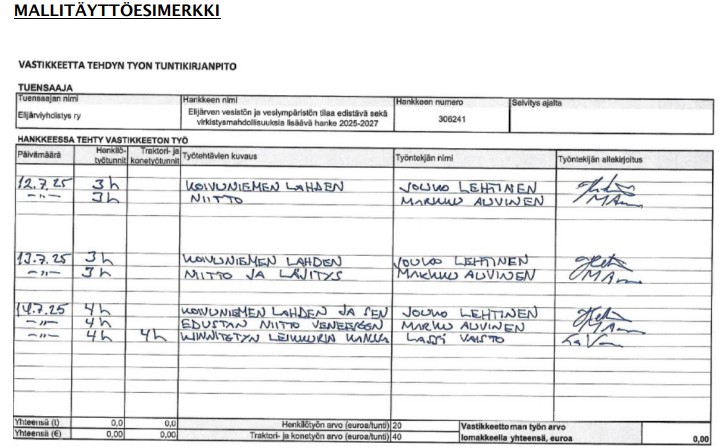 MALLITÄYTTÖESIMERKKI
VASTIKKEETTA TEHDYN TYÖN TUNTIKIRJANPITO
TUENSAAJA
Tuensaajan nimi Hankkeen nimi Hankkeen numero Selvitys ajalta
Elijärviyhdistys ry Elijärven vesistön ja vesiympäristön tilaa edistävä sekä virkistysmahdollisuuksia lisäävä hanke 2025-2027 306241
HANKKEESSA TEHTY VASTIKKEETON TYÖ
Päivämäärä Henkilö-työtunnit Traktori- ja konetyötunnit Työtehtävien kuvaus Työntekjän nimi Työntekijän allekirjoitus
12.7.25 3h KOIVUNIEMEN LAHDEN JOUKO LEHTINEN
-"- 3h NIITTO MARKKU AUVINEN
13.7.25 3h KOIVUNIEMEN LAHDEN JOUKO LEHTINEN
-"- 3h NIITTO JA LÄJITYS MARKKU AUVINEN
14.7.25 4h KOIVUNIEMEN LAHDEN JA SEN JOUKO LEHTINEN
-"- 4h EDUSTAN NIITTO VENEESEEN MARKKU AUVINEN
-"- 4h 4h KIINNITETYN LEIKKURIN KANSSA LASSI VAISTO
Yhteensä (t) 0,0 0,0 Henkilötyön arvo (euroa/tunti) 20 Vastikkeettoman työn arvo
Yhteensä (€) 0,00 0,00 Traktori- ja konetyön arvo (euroa/tunti) 40 lomakkeella yhteensä, euroa 0,00